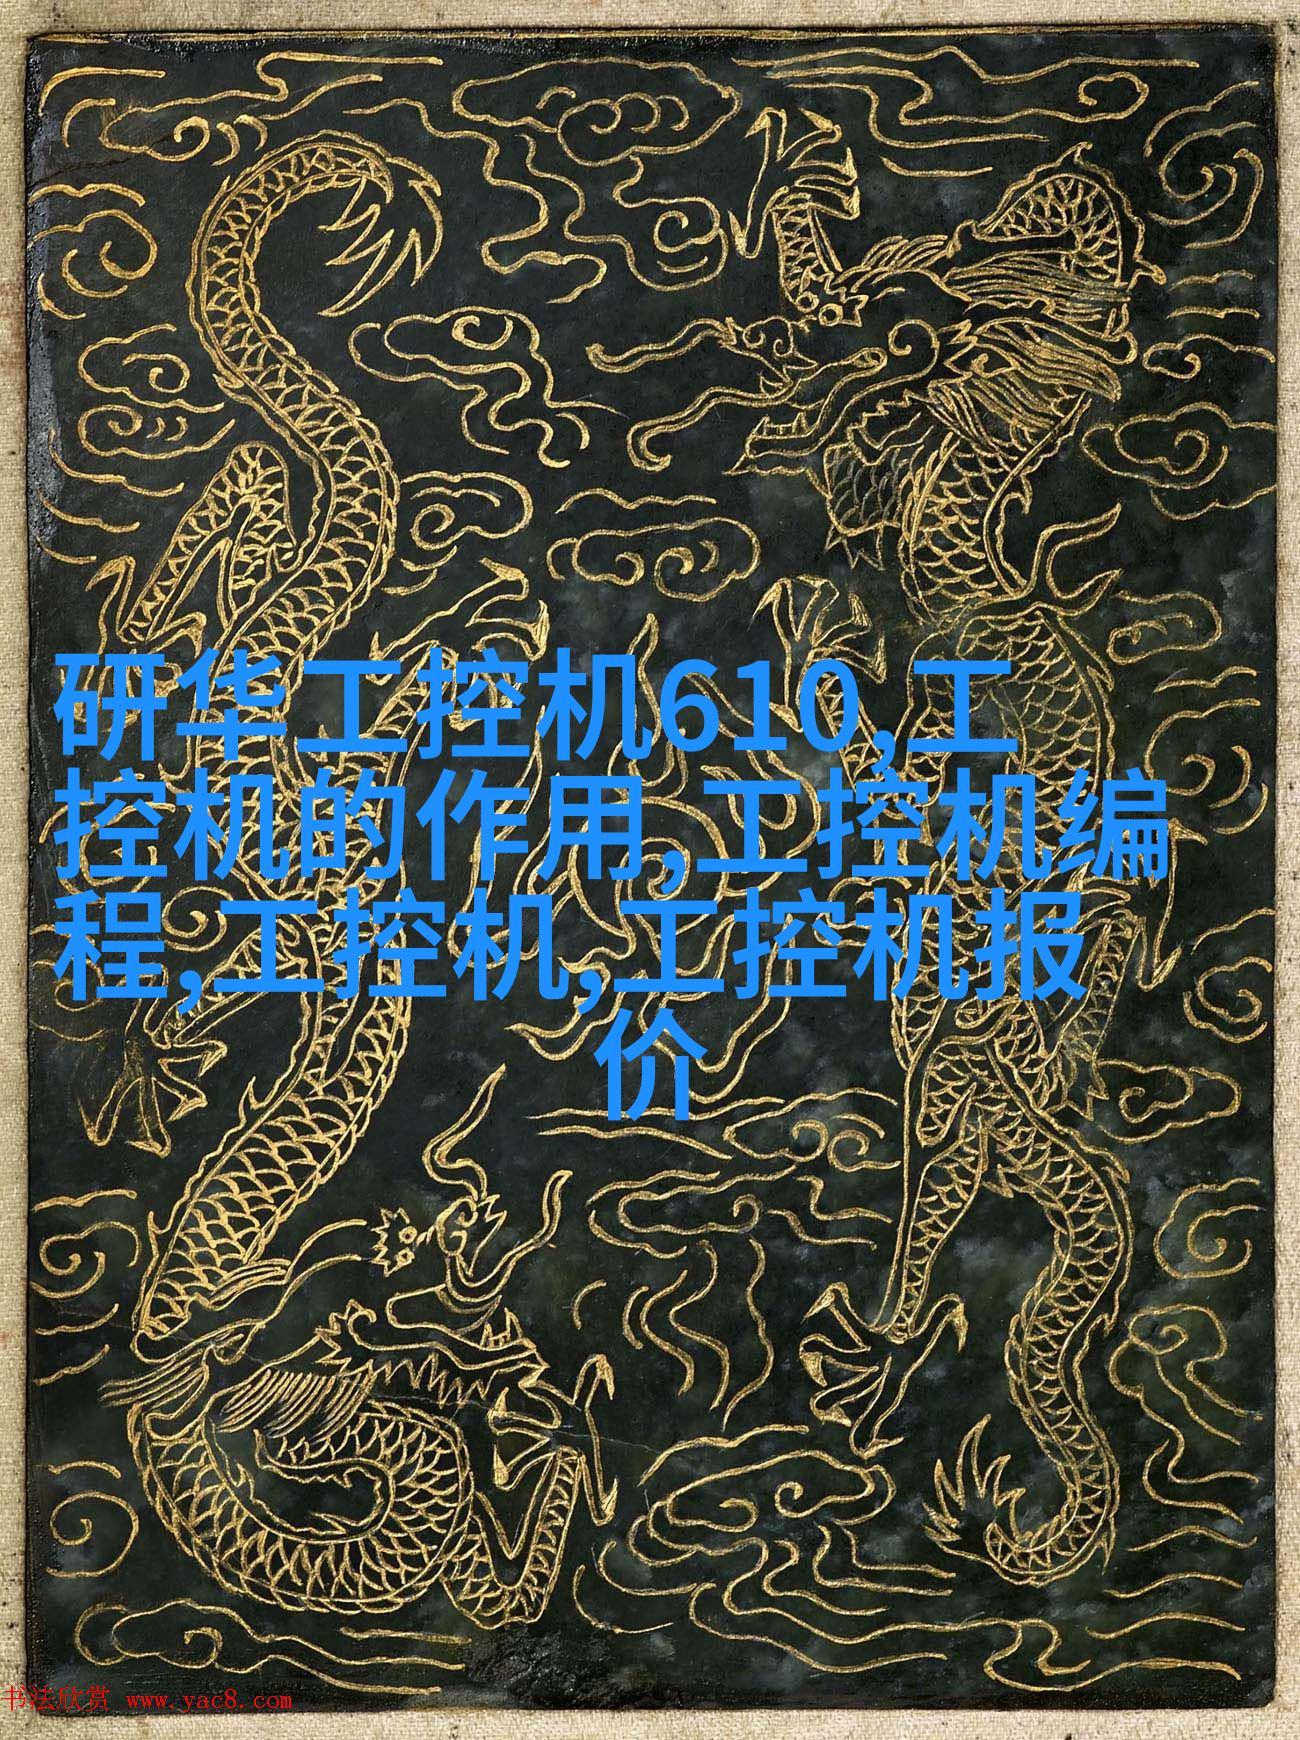 研华工控机610,工
控机的作用,工控机编
程,工控机,工控机报
价
书法欣赏 www.yac8.com